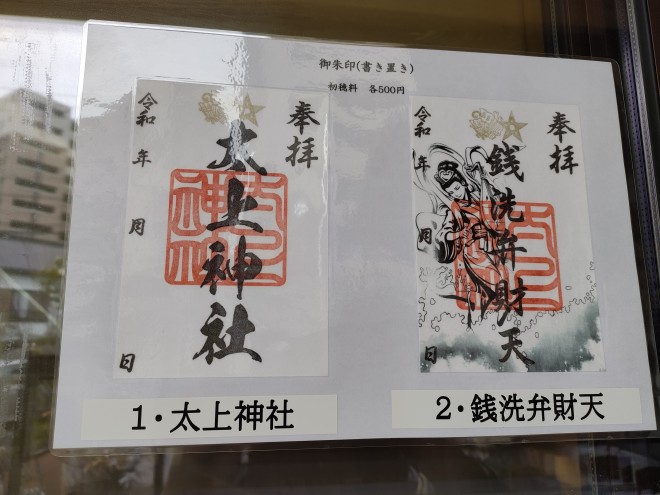 御朱印(書き置き)
初穂料 各500円
奉拝
太上神社
令和 年 月 日
奉拝
銭洗弁財天
令和 年 月 日
1・太上神社
2・銭洗弁財天